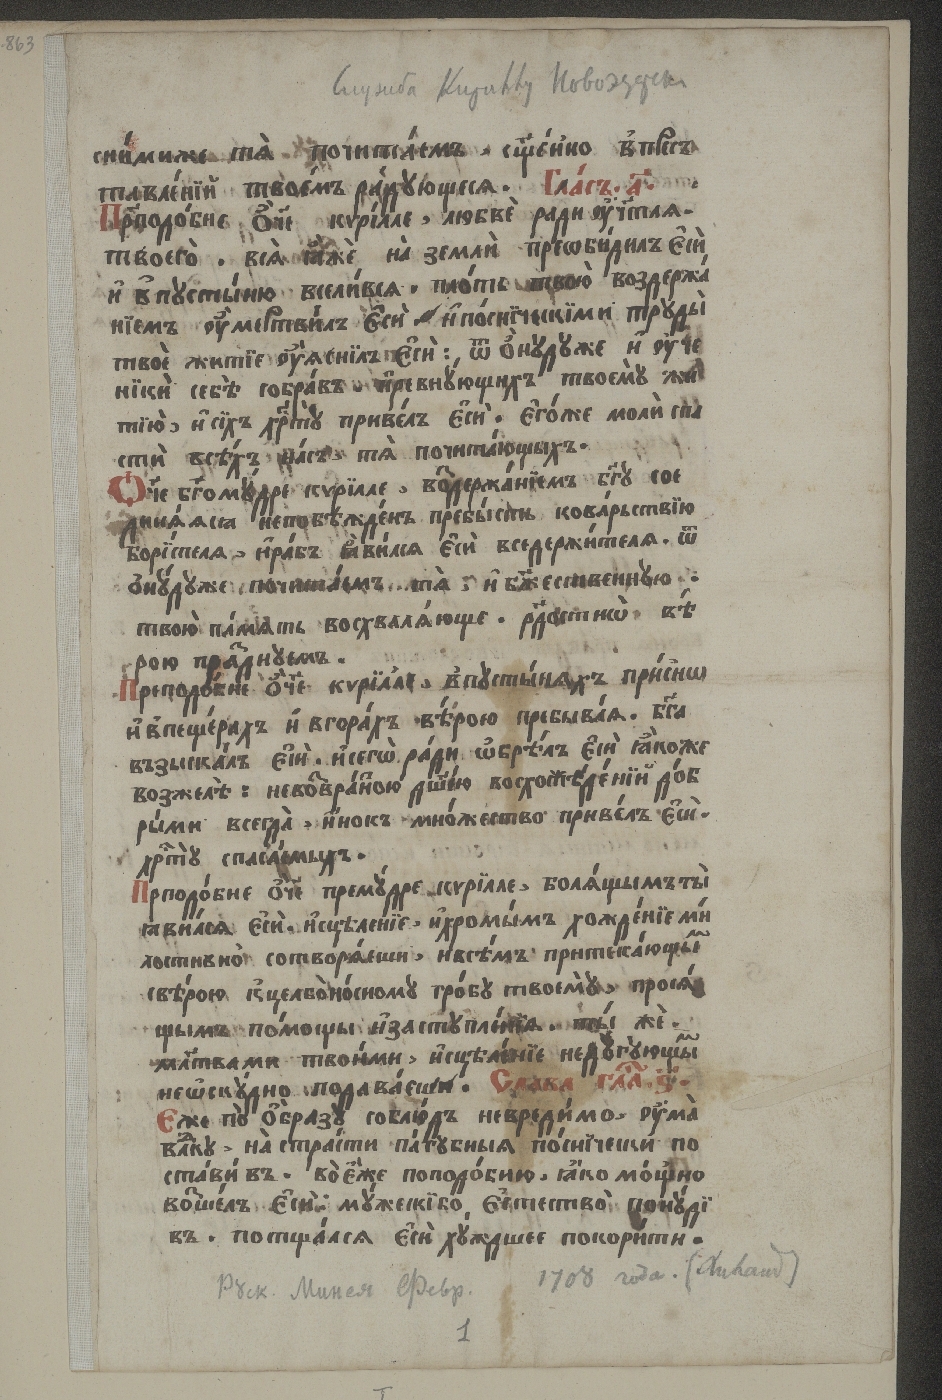 863
Служба Кириллу Новоезерск
сни́миже тѧ̀ почита́емъ, сщ҃е́нко в҆прес
тавле́нїй твое́мъ ра́дующесѧ. Гла́съ. а҃.
Прпⷣо́бне ѻ҆́ч҃е кѵрі́лле, любвѐ ради ᲂу҆чт҃лѧ
твоего̀. всѧ̀ ꙗ҆́же на̀ землѝ преѡби́дилъ є҆сѝ
и҆ в҆пусты́ню всели́всѧ. пло́ть твою̀ воздержа́
нїемъ ᲂу҆мертви́лъ є҆сѝ и҆по́сническїми труды̀
твоѐ житїе ᲂу҆ѧсни́лъ є҆сѝ: ѿ ѻ҆ну́дуже и҆ ᲂу҆че
никѝ себѣ̀ собра́въ. и҆ревну́ющихъ твоемꙋ̀ жи
тїю̀, и҆ сі́хъ хрⷭ҇тꙋ̀ приве́лъ є҆сѝ. є҆го́же молѝ спа
стѝ всѣ́хъ на́съ, тѧ̀ почита́ющыхъ.
Ѻ҆ч҃е бг҃ому́дре кѵрі́лле, во́здержа́нїемъ бг҃ꙋ сое
динѧ́ѧсѧ непобѣжде́нъ пребы́сть кова́рьствїю
борі́телѧ, и҆ра́бъ ꙗ҆ви́лсѧ є҆сѝ вседержи́телѧ. ѿ
ѻ҆ну́дуже почита́емъ тѧ̀, и҆ бж҃е́ственную
твою̀ па́мѧть восхвалѧ́юще. ра́достию̀ вѣ́
рою пра́зднуемъ.
Преподо́бне ѻ҆́ч҃е кѵрі́лле, в҆пусты́нѧхъ при́снѡ
и҆ в҆пеще́рахъ и҆ вгора́хъ вѣ́рою пребыва́ѧ. бг҃а
възыска́лъ є҆сѝ. и҆сегѡ̀ ра́ди ѡ҆брѣ́лъ є҆сѝ ꙗ҆́коже
возжелѣ̀: невозвра́нною дш҃е́ю восхожде́нїй до́б
рыми всегда̀, и҆́нокъ мно́жество приве́лъ є҆сѝ.
хрⷭ҇тꙋ̀ спаса́емыхъ.
Прпⷣо́бне ѻ҆́ч҃е прему́дре кѵрі́лле, болѧ́щымъ ты̀
ꙗ҆ви́лсѧ є҆сѝ. и҆сцѣле́нїе, и҆хромы́мъ хожде́нїе ми
лостивно̀ сотворѧ́еши, и҆всѣ́мъ притека́ющы
свѣ́рою к҆целбоно́сному гро́бꙋ твоемꙋ̀, просѧ́
щымъ по́мощы и҆заступле́нїѧ. ты́ же.
мл҃твами твои́ми, и҆сцѣле́нїе неду́гующы
неѡску́дно подава́еши. Слава гла́. ѕ҃.
Е҆́же по̀ ѻ҆́бразу соблю́дъ невреди́мо, ᲂу҆ма̀
влⷣкꙋ, на̀ стра́сти па́губныѧ по́снически по
ста́вивъ. во̀ є҆́же поподо́бию, ꙗ҆́ко мо́щно
возше́лъ є҆сѝ: му́жескїбо є҆стество̀ пону́дї
въ. потща́лсѧ є҆сѝ ху́ждшее покори́ти.
Руск. Минея Февр. 1708 года.
1